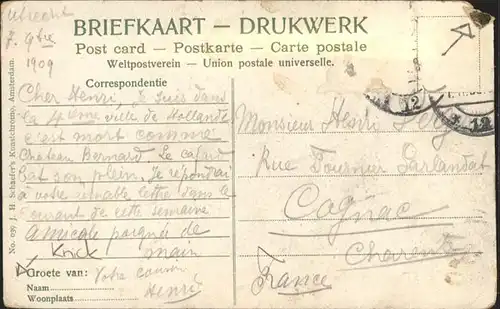 Utrecht
7. 9bre
1909
BRIEFKAART — DRUKWERK
Post card — Postkarte — Carte postale
Weltpostverein — Union postale universelle.
Correspondentie
Cher Henri, Je suis dans
la 4ème ville de Hollande
c'est mort comme
Chateau Bernard. Le cafard
Bat son plein. Je répondrai
à votre aimable lettre dans le
courant de cette semaine
Amicale poignée de
main
Knick
Groete van: Votre cousin
Naam Henri
Woonplaats
No. 039. J. H. Schaefer's Kunstchromo, Amsterdam.
Monsieur Henri
Rue Fournier Sarlandat
Cognac
Charente
France
12
12